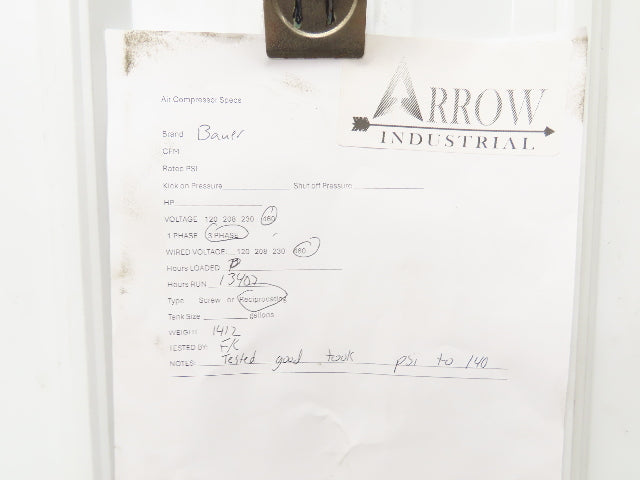 ARROW
INDUSTRIAL
Air Compressor Specs
Brand Bauer
CFM
Rated PSI
Kick on Pressure Shut off Pressure
HP
VOLTAGE 120 208 230 460
1 PHASE 3 PHASE
WIRED VOLTAGE 120 208 230 460
Hours LOADED
Hours RUN 13402
Type Screw or Reciprocating
Tank Size gallons
WEIGHT 1412
TESTED BY: FK
NOTES: Tested good took psi to 140